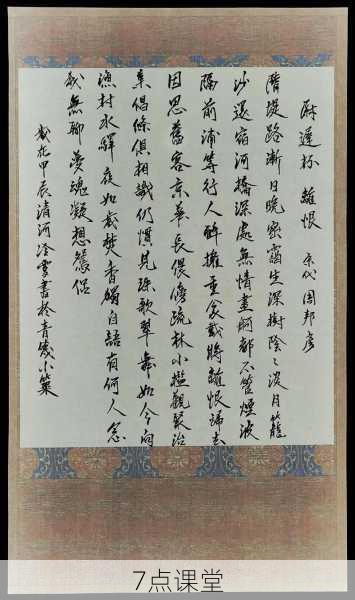 尉遲杯 離恨 宋代 周邦彥
隋堤路漸日晚密靄生深樹陰〻淡月籠
沙還宿河橋深處無情畫舸都不管煙波
隔前浦等行人醉擁重衾載將離恨歸去
因思舊客京華長偎傍疏林小檻歡聚冶
葉倡條俱相識仍慣見珠歌翠舞如今向
漁村水驛夜如歲焚香獨自語有何人念
我無聊夢魂凝想鴛侶
歲在甲辰清河冷書於青小築
7点课堂